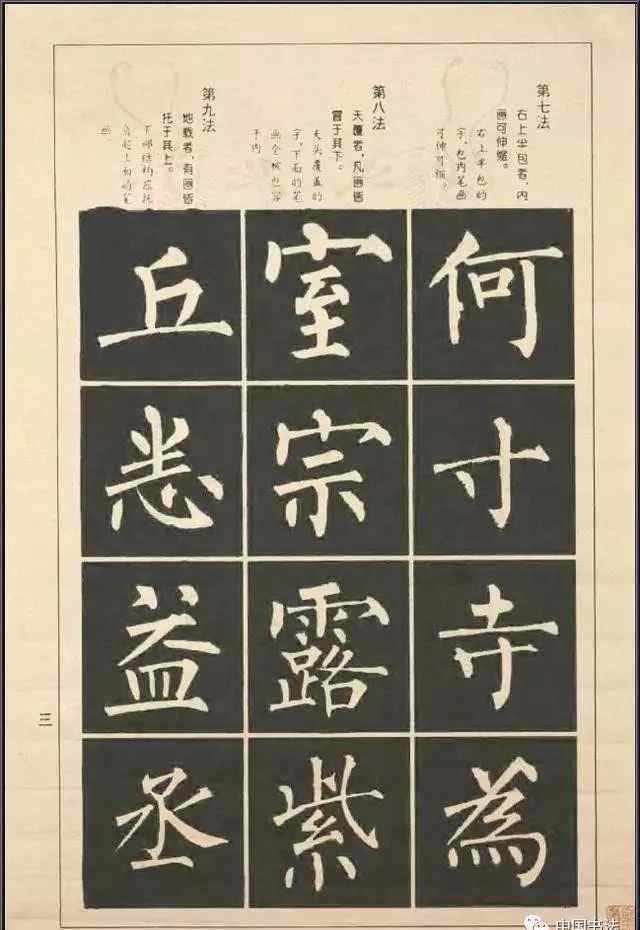 第七法
右上半包者，内
画可伸缩。
右上半包的
字，包内笔画
可伸可缩。
何
寸
寺
為
第八法
天覆者，凡画皆
冒于其下。
天头覆盖的
字，下面的笔
画全被包容
于内
室
宗
露
紫
第九法
地载者，有画皆
托于其上。
下部结构应托
负起上面的笔
画
丘
悉
益
丞
三
中国书法